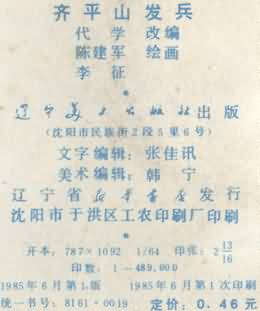 齐平山发兵
代学 改编
陈建军 绘画
李征
辽宁美术出版社出版
(沈阳市民族街2段5里6号)
文字编辑：张佳讯
美术编辑：韩宁
辽宁省新华书店发行
沈阳市于洪区工农印刷厂印刷
开本：787×1092 1/64 印张：2 13/16
印数：1—489,000
1985年6月第1版 1985年6月第1次印刷
统一书号：8161·0019 定价：0.46元